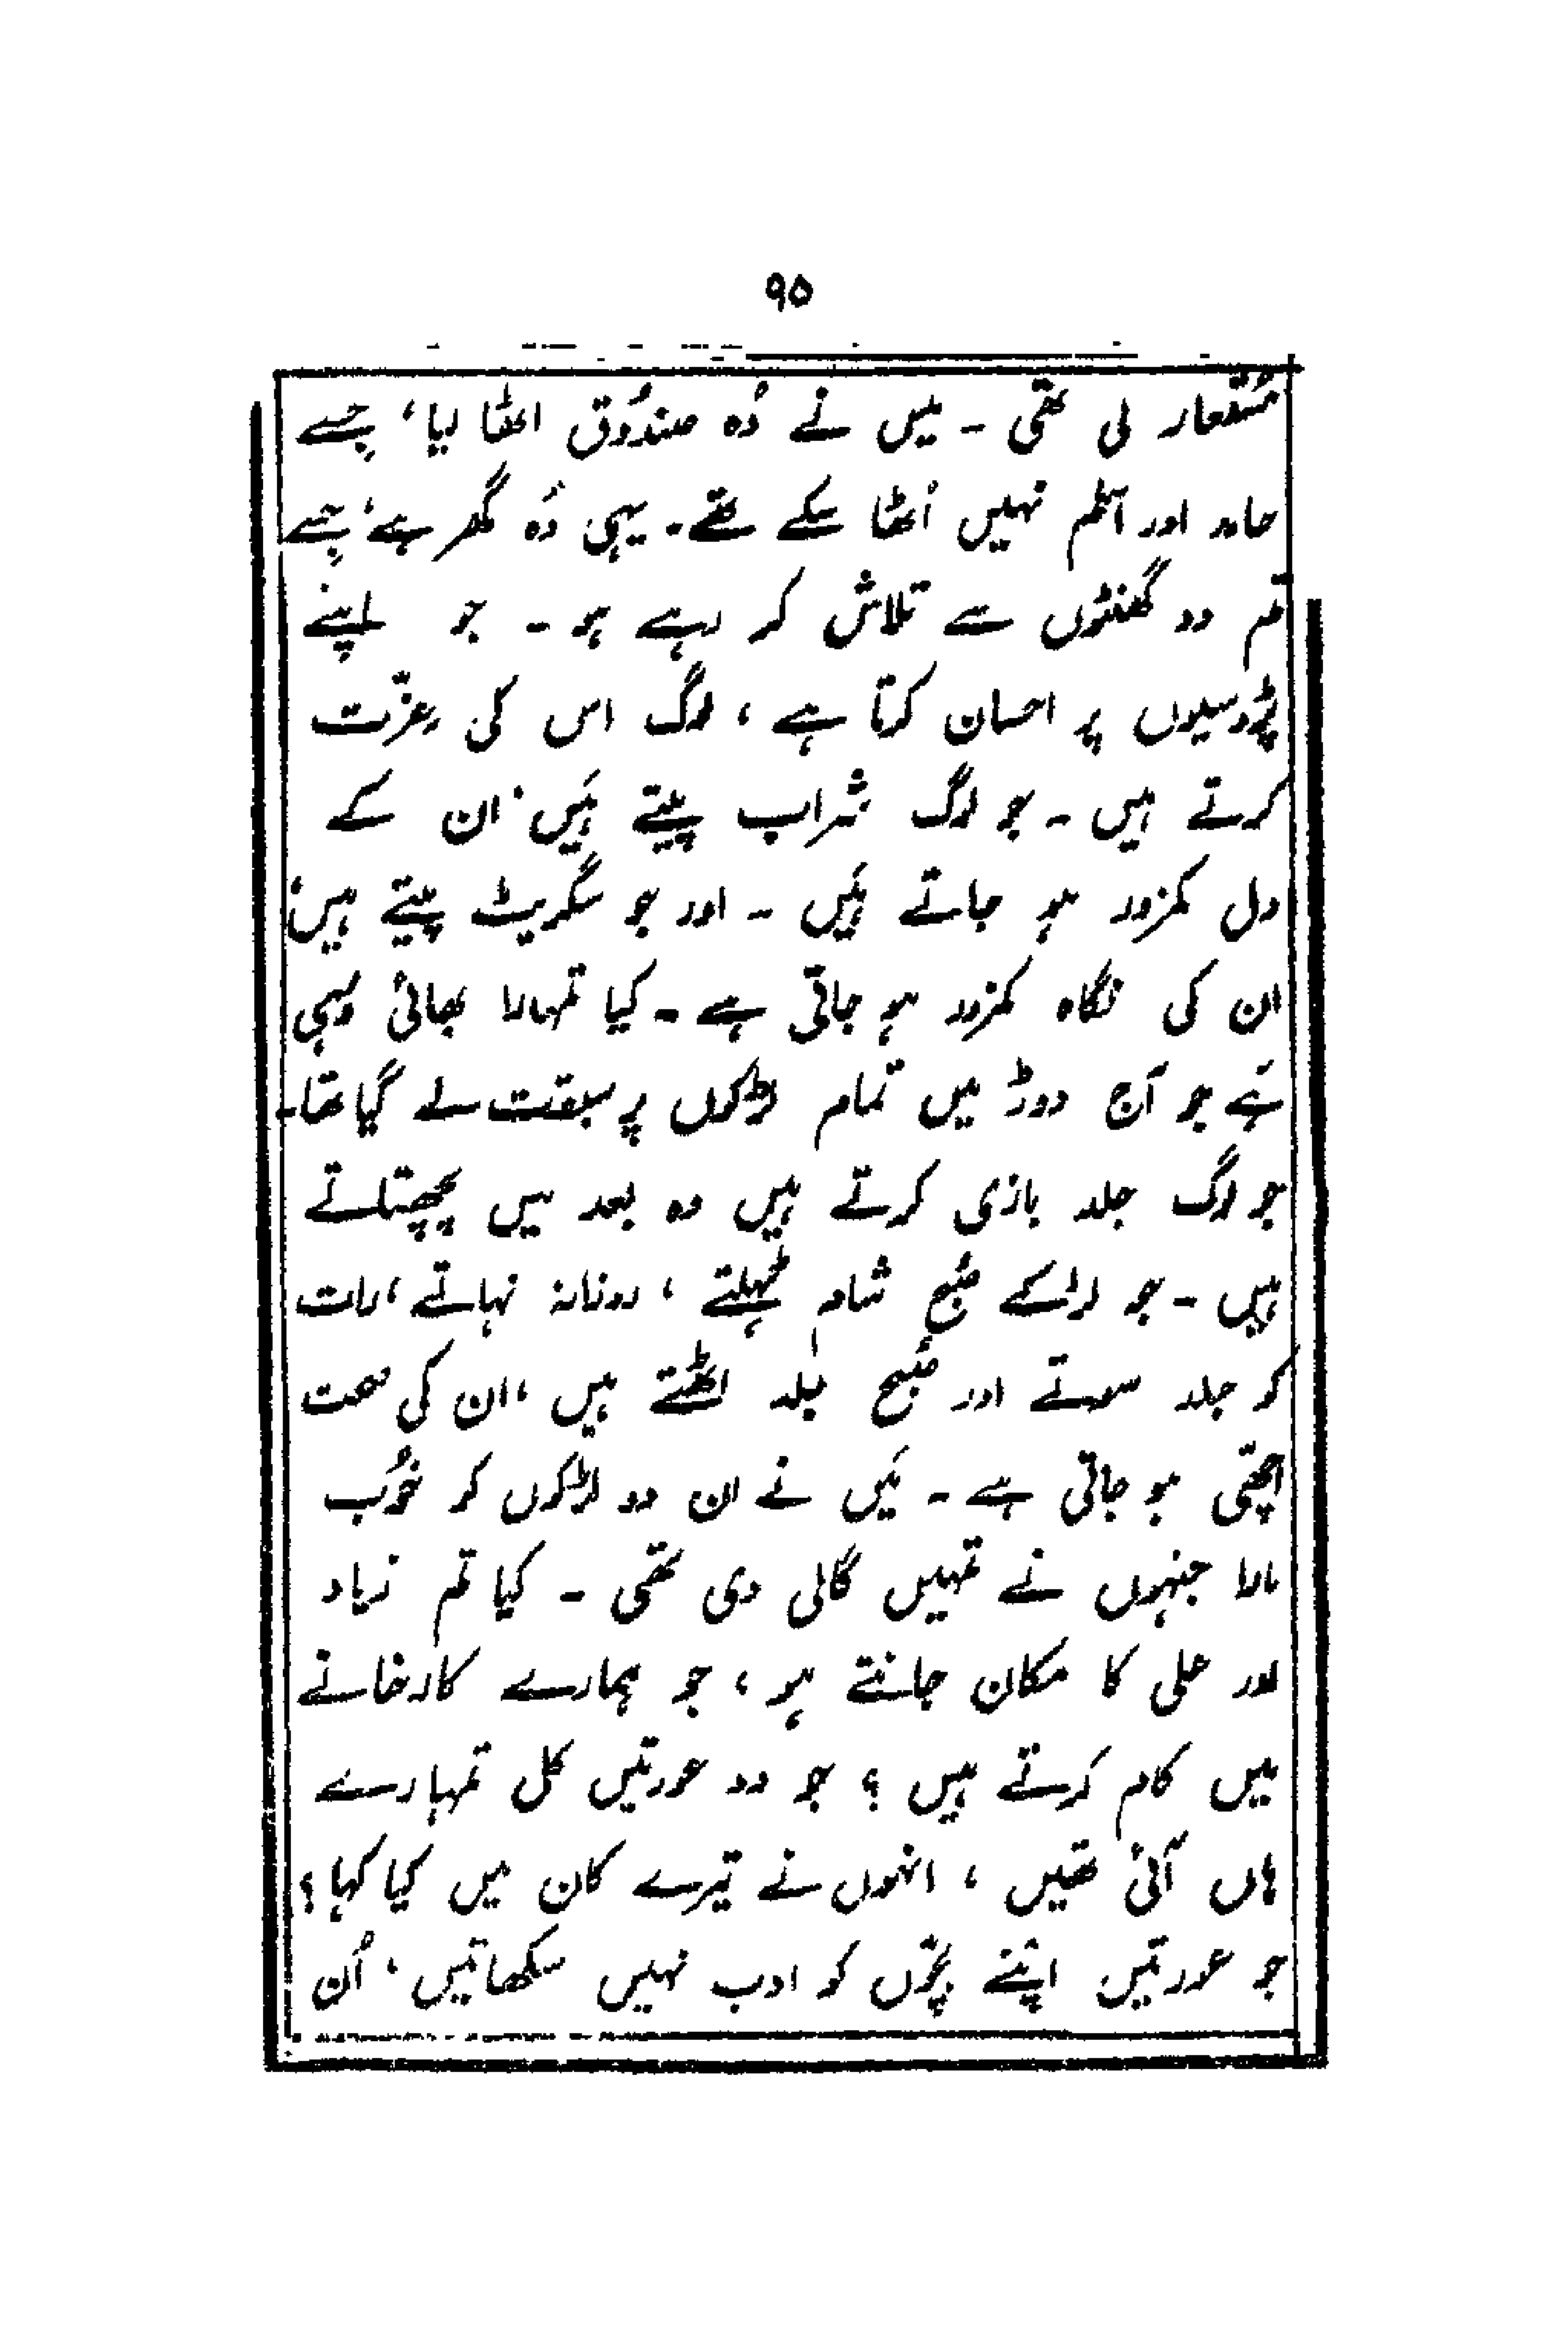 ۹۵
مُستعار لی تھی ۔ میں نے وُہ صندُوق اٹھا لیا، جِسے
حامد اور اسلم نہیں اُٹھا سکے تھے۔ یہی وُہ گھر ہے، جِسے
تم دو گھنٹوں سے تلاش کر رہے ہو ۔ جو اپنے
پڑوسیوں پر احسان کرتا ہے ، لوگ اس کی عِزّت
کرتے ہیں ۔ جو لوگ شراب پیتے ہَیں، ان کے
دل کمزور ہو جاتے ہَیں ۔ اور جو سگریٹ پیتے ہیں،
ان کی نگاہ کمزور ہو جاتی ہے ۔ کیا تمہارا بھائی وُہی
ہَے جو آج دوڑ میں تمام لڑکوں پر سبقت لے گیا تھا۔
جو لوگ جلد بازی کرتے ہیں وہ بعد میں پچھتاتے
ہیں ۔ جو لڑکے صُبح شام ٹہلتے ، روزانہ نہاتے ، رات
کو جلد سوتے اور صُبح جلد اٹھتے ہیں ، ان کی صحت
اچھّی ہو جاتی ہے ۔ مَیں نے ان دو لڑکوں کو خُوب
مارا جنہوں نے تمہیں گالی دی تھی ۔ کیا تم زیاد
اور علی کا مکان جانتے ہو ، جو ہمارے کارخانے
میں کام کرتے ہیں ؟ جو دو عورتیں کل تمہارے
ہاں آئی تھیں ، انہوں نے تیرے کان میں کیا کہا ؟
جو عورتیں اپنے بچّوں کو ادب نہیں سکھاتیں ، اُن